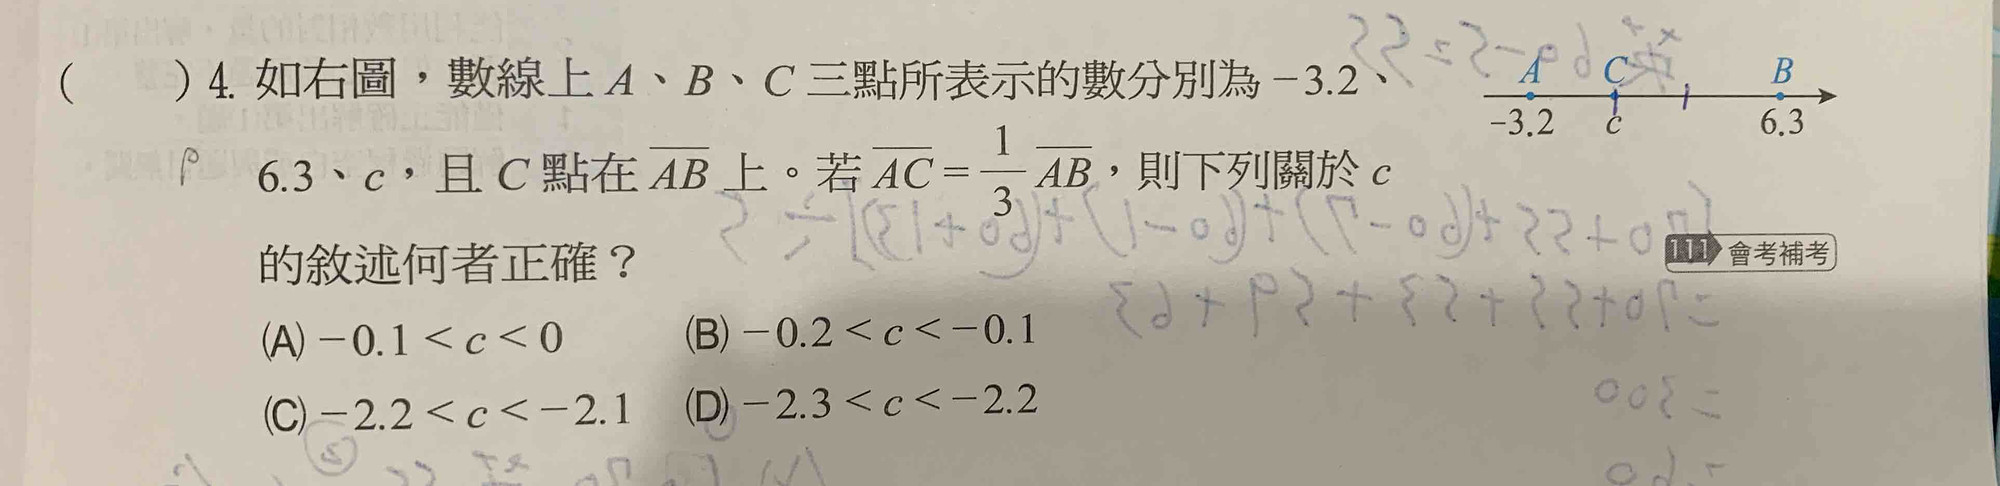 ( ) 4. 如右圖，數線上 A、B、C 三點所表示的數分別為 −3.2、
6.3、c，且 C 點在 AB 上。若 AC = 1/3 AB，則下列關於 c
的敘述何者正確？
111 會考補考
(A) −0.1 < c < 0 (B) −0.2 < c < −0.1
(C) −2.2 < c < −2.1 (D) −2.3 < c < −2.2
A C B
−3.2 c 6.3